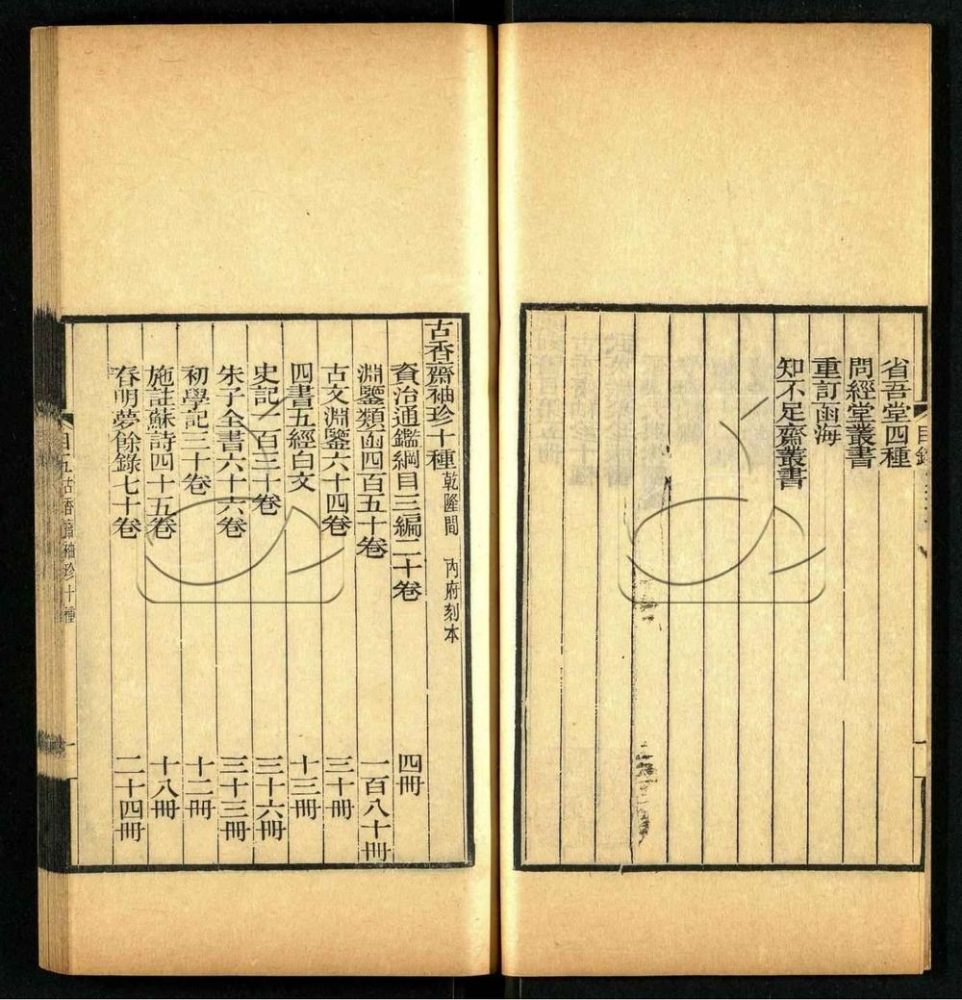 省吾堂四種
問經堂叢書
重訂函海
知不足齋叢書
目錄
古香齋袖珍十種 乾隆間 內府刻本
資治通鑑綱目三編二十卷 四冊
淵鑒類函四百五十卷 一百八十冊
古文淵鑒六十四卷 三十冊
四書五經白文 十三冊
史記一百三十卷 三十六冊
朱子全書六十六卷 三十三冊
初學記三十卷 十二冊
施註蘇詩四十五卷 十八冊
春明夢餘錄七十卷 二十四冊
古香齋袖珍十種
一